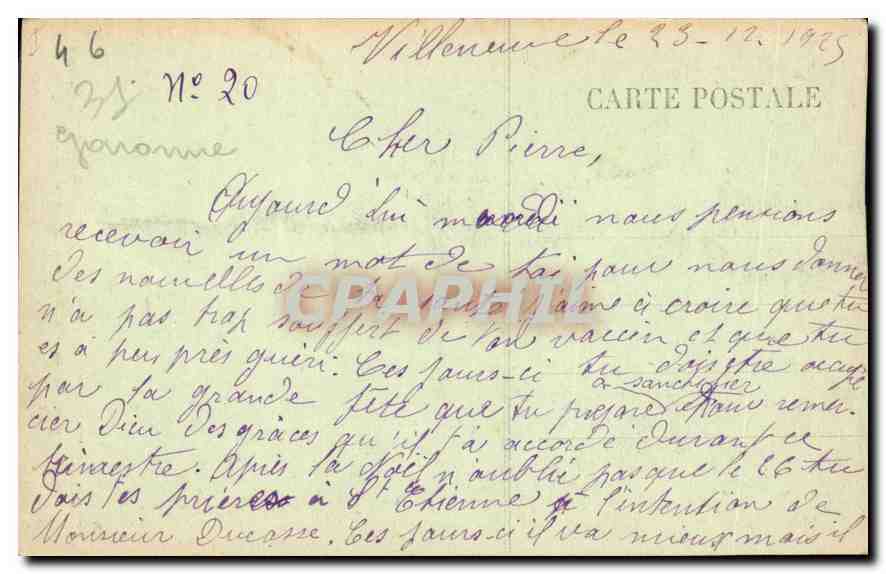 46
Villeneuve le 23-12-1925
31
N° 20
garonne
CARTE POSTALE
Cher Pierre,
Aujourd'hui mardi nous pensions
recevoir un mot de toi pour nous donner
des nouvelles de ta santé j'aime à croire que tu
n'a pas trop souffert de ton vaccin et que tu
es à peu près guéri. Ces jours-ci tu dois être occupé
à sanctifier
par la grande fête que tu prépare et aux remer-
cier Dieu des grâces qu'il t'a accordé durant ce
trimestre. Après la Noël n'oubli pas que le 26 tu
dois tes prières à St Etienne à l'intention de
Monsieur Ducasse. Ces jours-ci il va mieux mais il
CPAPHIL